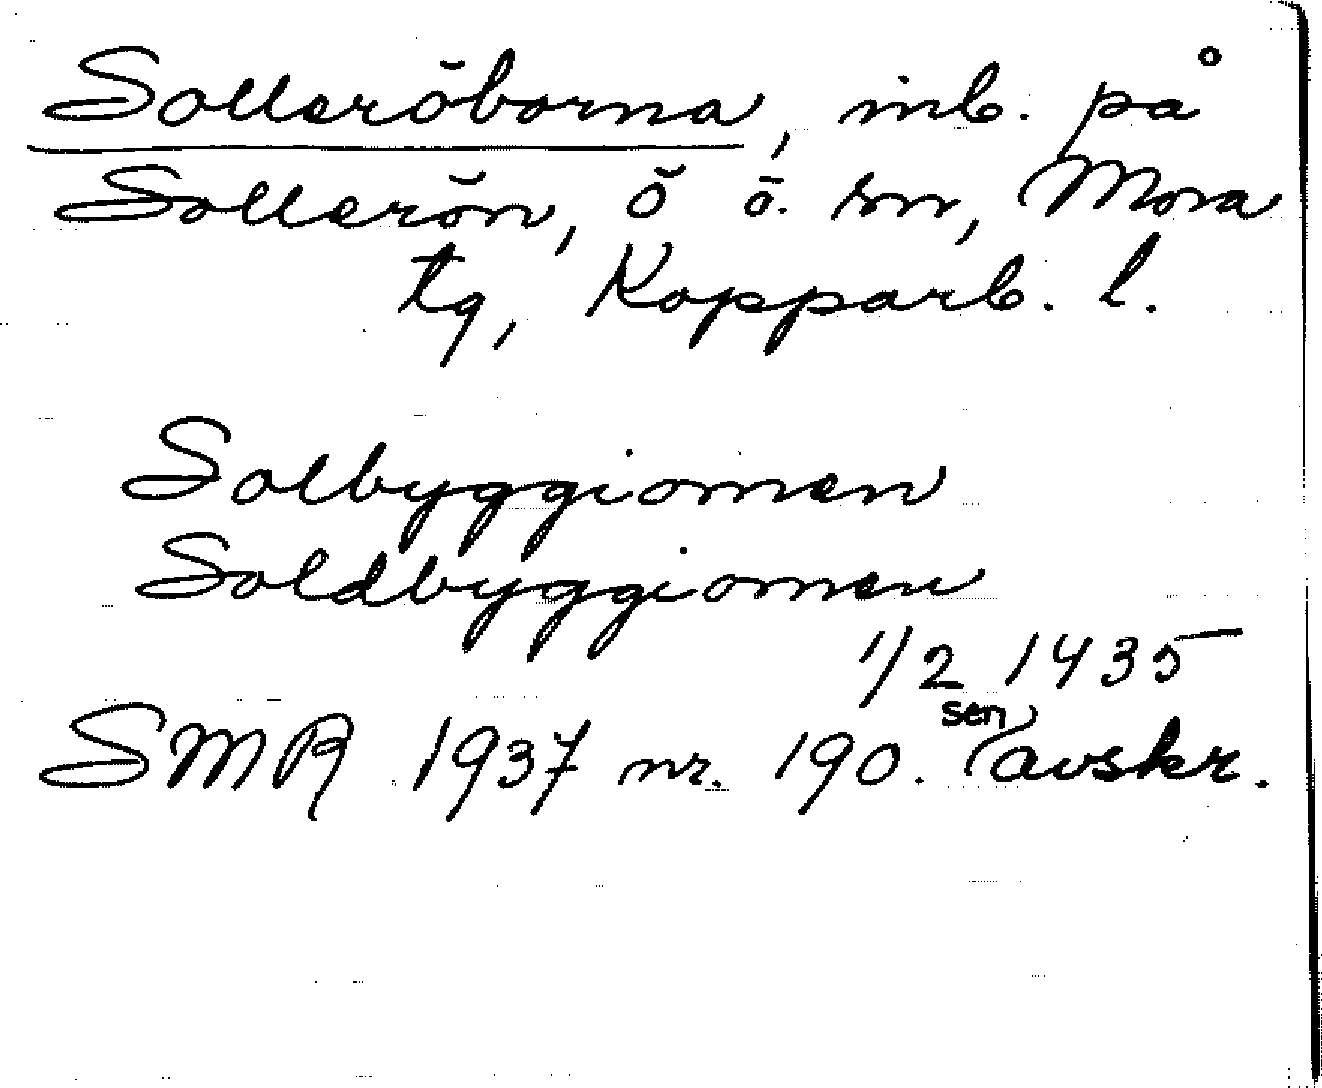 Solleröborna, inb. på
Sollerön, ö o. sn, Mora
tg, Kopparb. l.
Solbyggiomen
Soldbyggiomen
1/2 1435
SMR 1937 nr. 190. sen avskr.